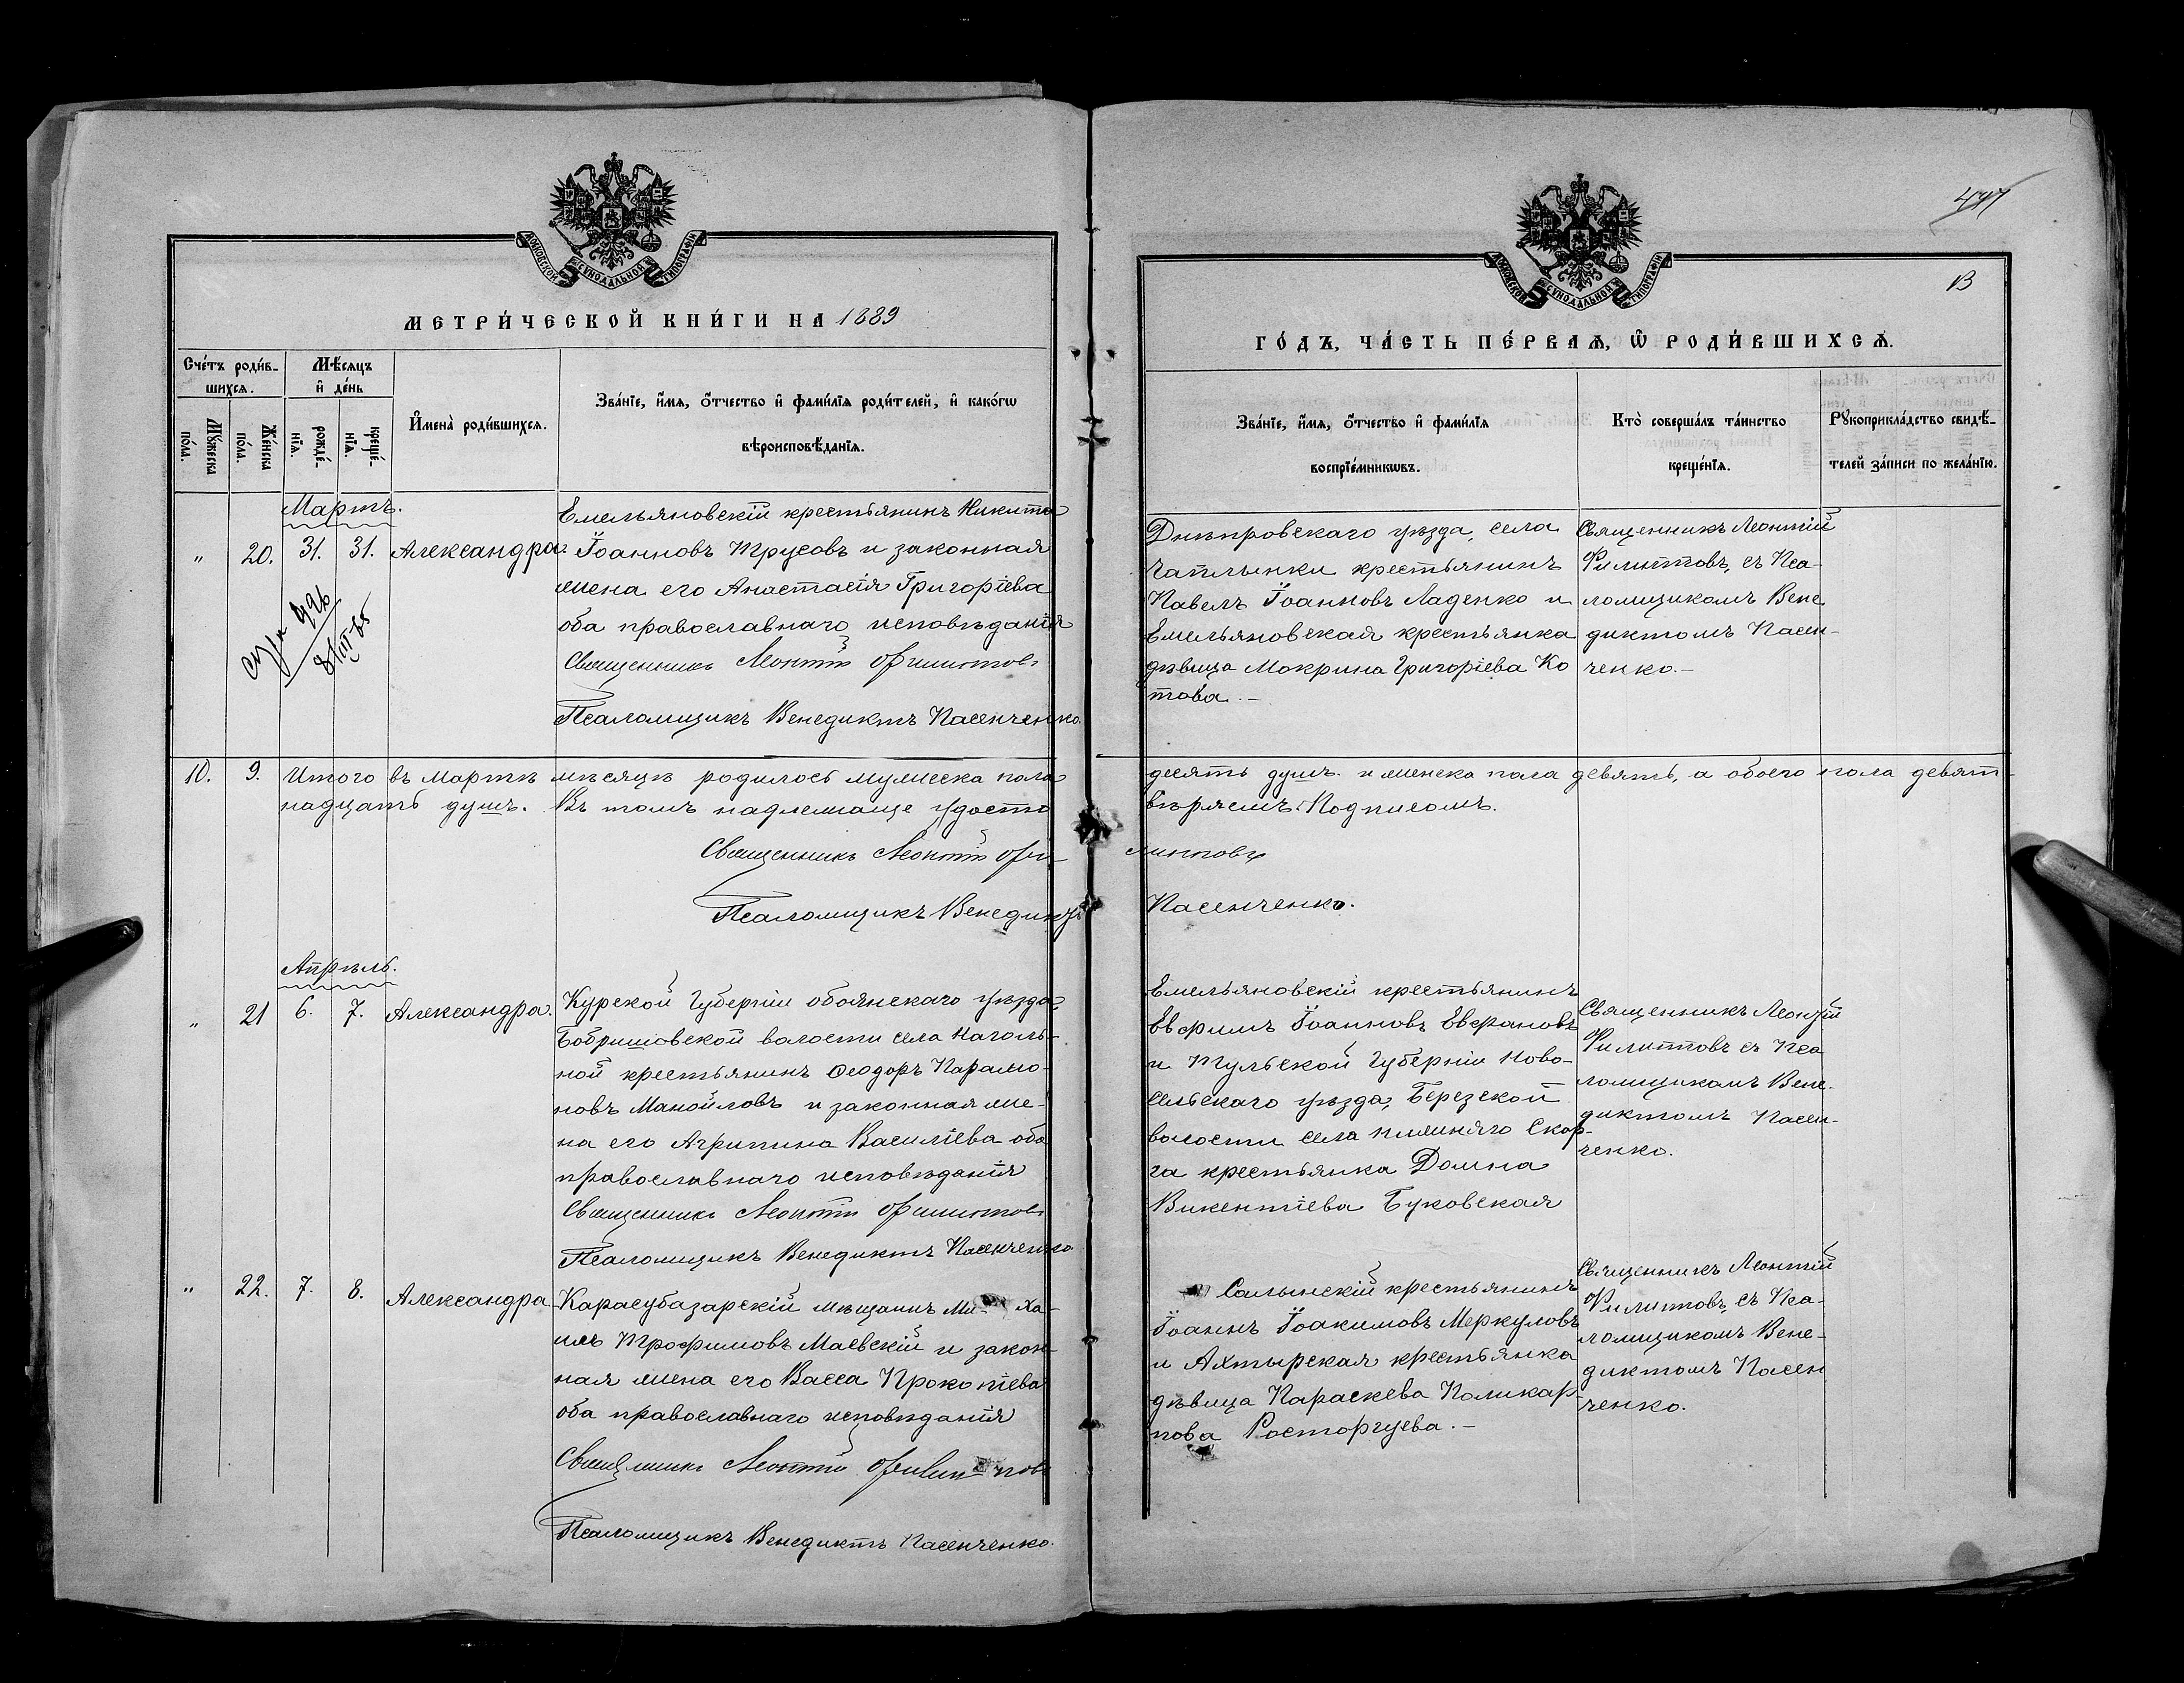 МОСКОВСКОЙ СѴНОДАЛЬНОЙ ТИПОГРАФІИ
МЕТРИ́ЧЕСКОЙ КНИ́ГИ НА 1889
Сче́тъ роди́в-
шихсѧ.
Мѣ́сѧцъ
и҆ де́нь
Мꙋ́жеска
по́ла.
Же́нска
по́ла.
рожде́-
нїѧ.
креще́-
нїѧ.
И҆мена̀ роди́вшихсѧ.
Зва́нїе, и҆́мѧ, ѻ҆́тчество и҆ фами́лїѧ роди́телей, и҆ како́гѡ
вѣроисповѣ́данїѧ.
Мартъ.
" 20. 31. 31. Александра.
Емельяновскій крестьянинъ Никита
Іоанновъ Трусовъ и законная
жена его Анастасія Григоріева
оба православнаго исповѣданія
Священникъ Леонтій Филиппов
Псаломщикъ Венедиктъ Пасенченко.
10. 9. Итого въ Мартѣ мѣсяцѣ родилось мужеска пола
надцать душъ. Въ томъ надлежаще удосто
Священникъ Леонтій Фи-
Псаломщикъ Венедиктъ
Апрѣль.
" 21 6. 7. Александра.
Курской Губерніи обоянскаго уѣзда,
Бобришовской волости села Наголь-
ной крестьянинъ Ѳеодоръ Парамо-
новъ Манойловъ и законная же-
на его Агрипина Василіева оба
православнаго исповѣданія
Священникъ Леонтій Филиппов
Псаломщикъ Венедиктъ Пасенченко
" 22. 7. 8. Александра.
Карасубазарскій мѣщанинъ Ми- ха-
илъ Трофимовъ Маевскій и закон-
ная жена его Васса Прокопіева
оба православнаго исповѣданія
Священникъ Леонтій Филип пов
Псаломщикъ Венедиктъ Пасенченко.
МОСКОВСКОЙ СѴНОДАЛЬНОЙ ТИПОГРАФІИ
13
ГО́ДЪ, ЧА́СТЬ ПЕ́РВАѦ, Ѽ РОДИ́ВШИХСѦ.
Зва́нїе, и҆́мѧ, ѻ҆́тчество и҆ фами́лїѧ
воспрїе́мникѡвъ.
Кто̀ соверша́лъ та́инство
креще́нїѧ.
Рꙋкоприкла́дство свидѣ́-
телей за́писи по жела́нїю.
Днѣпровскаго уѣзда, села
Чаплынки крестьянинъ
Павелъ Іоанновъ Ладенко и
Емельяновская крестьянка
дѣвица Мокрина Григоріева Ко
това.-
Священникъ Леонтій
Филипповъ, съ Пса-
ломщикомъ Вене
диктомъ Пасен-
ченко.-
десять душъ. и женска пола девять, а обоего пола девят-
вѣряемъ Подписомъ.
липповъ
Пасенченко.
Емельяновскій крестьянинъ
Евфимъ Іоанновъ Евфановъ
и Тульской Губерніи Ново-
сельскаго уѣзда, Березской
волости села нижняго Скор-
га крестьянка Домна
Викентіева Буковская
Священникъ Леонтій
Филипповъ съ Пса
ломщикомъ Вене-
диктомъ Пасен-
ченко.
Салынскій крестьянинъ
Іоаннъ Іоакимовъ Меркуловъ
и Ахтырская крестьянка
дѣвица Параскева Поликар-
пова Расторгуева.-
Священникъ Леонтій
Филипповъ, съ Пса-
ломщикомъ Вене-
диктомъ Пасен
ченко.